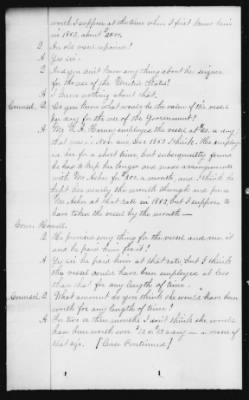 worth I suppose at the time when I first knew her
in 1863, about 2000.
Q An old worn up
A Yes sir.
Q And you don't know any thing about her seizure
for the use of the United States?
A I know nothing about that.
Counsel. Q Do you know what would be the value of this vessel
per day for the use of the Government?
A employed the vessel at a day
that was in Nov. and Dec. 1863 I think. He employed
her for a short time, but subsequently found
he had to keep her longer and made arrangements
with Mr. for $ a month, and I think he
kept her nearly the month through and paid
Mr. at that rate in 1863, but I suppose to
have taken the vessel by the month —
Q He promised any thing for the vessel and run it
and he paid him for it?
A Yes sir he paid him at that rate but I think
the vessel could have been employed at less
than that for any length of time.
Counsel Q What amount do you think she would have been
worth for any length of time?
A For two or three months I don't think she would
have been worth over 12 or 15 a day — a vessel of
that age. [Case Continued]